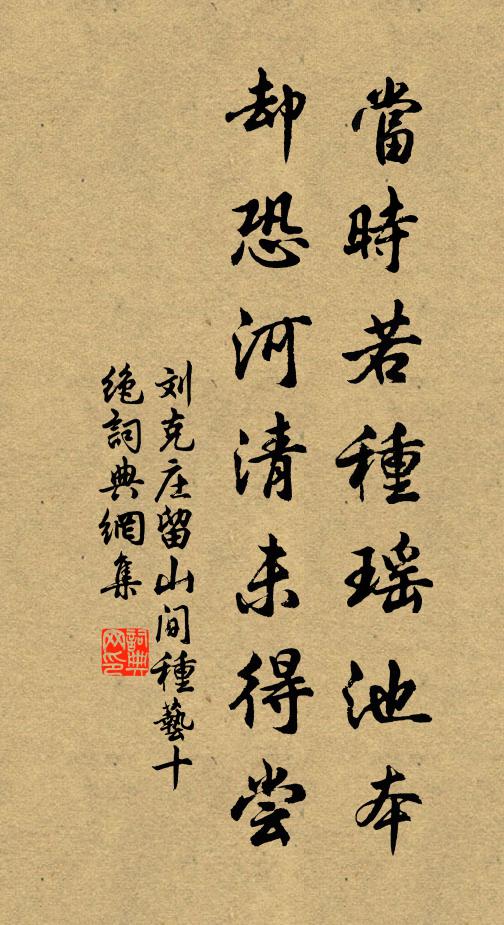 當時若種瑶池本
却恐河清未得尝
刘克庄留山间種藝十
绝詞典網集
詞典
网印